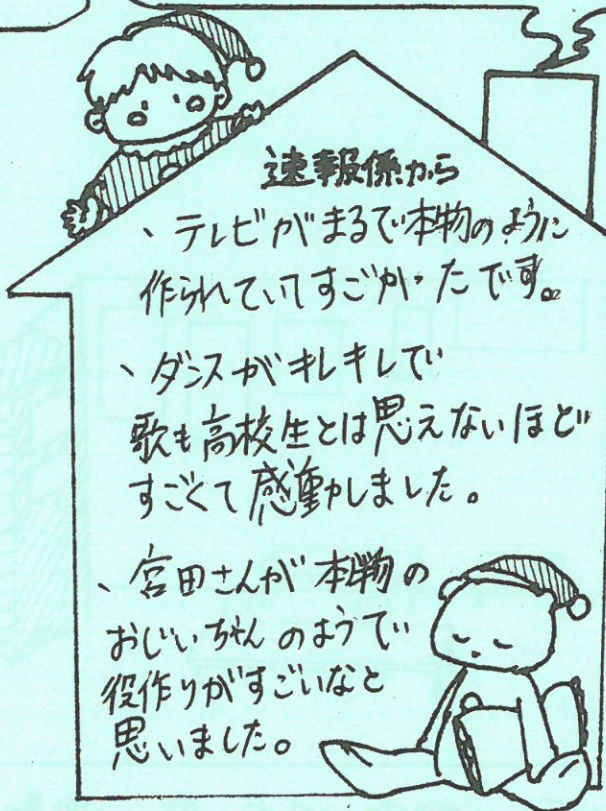 速報係から
、テレビがまるで本物のように
作られていてすごかったです。
、ダンスがキレキレで
歌も高校生とは思えないほど
すごくて感動しました。
、宮田さんが本物の
おじいちゃんのようで
役作りがすごいなと
思いました。